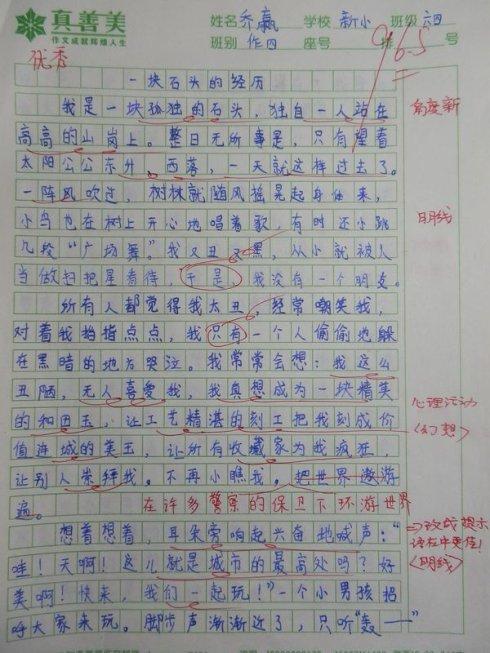 真善美 姓名 乔赢 学校 新小 班级 六四
作文成就辉煌人生 班别 作四 座号 号
优秀 96.5
一块石头的经历
我是一块孤独的石头，独自一人站在 角度新
高高的山岗上。整日无所事是，只有望着
太阳公公东升，西落，一天就这样过去了。
一阵风吹过，树林就随风摇晃起身体来，
小鸟也在树上开心地唱着歌，有时还小跳 明线
几段“广场舞”。我又丑又黑，从小就被人
当做扫把星看待，于是，我没有一个朋友。
所有人都觉得我太丑，经常嘲笑我，
对着我指指点点，我只有一个人偷偷地躲
在黑暗的地方哭泣。我常常会想：我这么
丑陋，无人喜爱我，我真想成为一块精美 心理活动
的和田玉，让工艺精湛的刻工把我刻成价 (幻想)
值连城的美玉，让所有收藏家为我疯狂，
让别人崇拜我。不再小瞧我。把世界遨游
遍。 在许多警察的保卫下环游世界
想着想着，耳朵旁响起兴奋地喊声：“ 改成提示
哇！天啊！这儿就是城市的最高处吗？好 语在中更佳！
美啊！快来，我们一起玩！”一个小男孩招 (明线)
呼大家来玩。脚步声渐渐近了，只听“轰——”